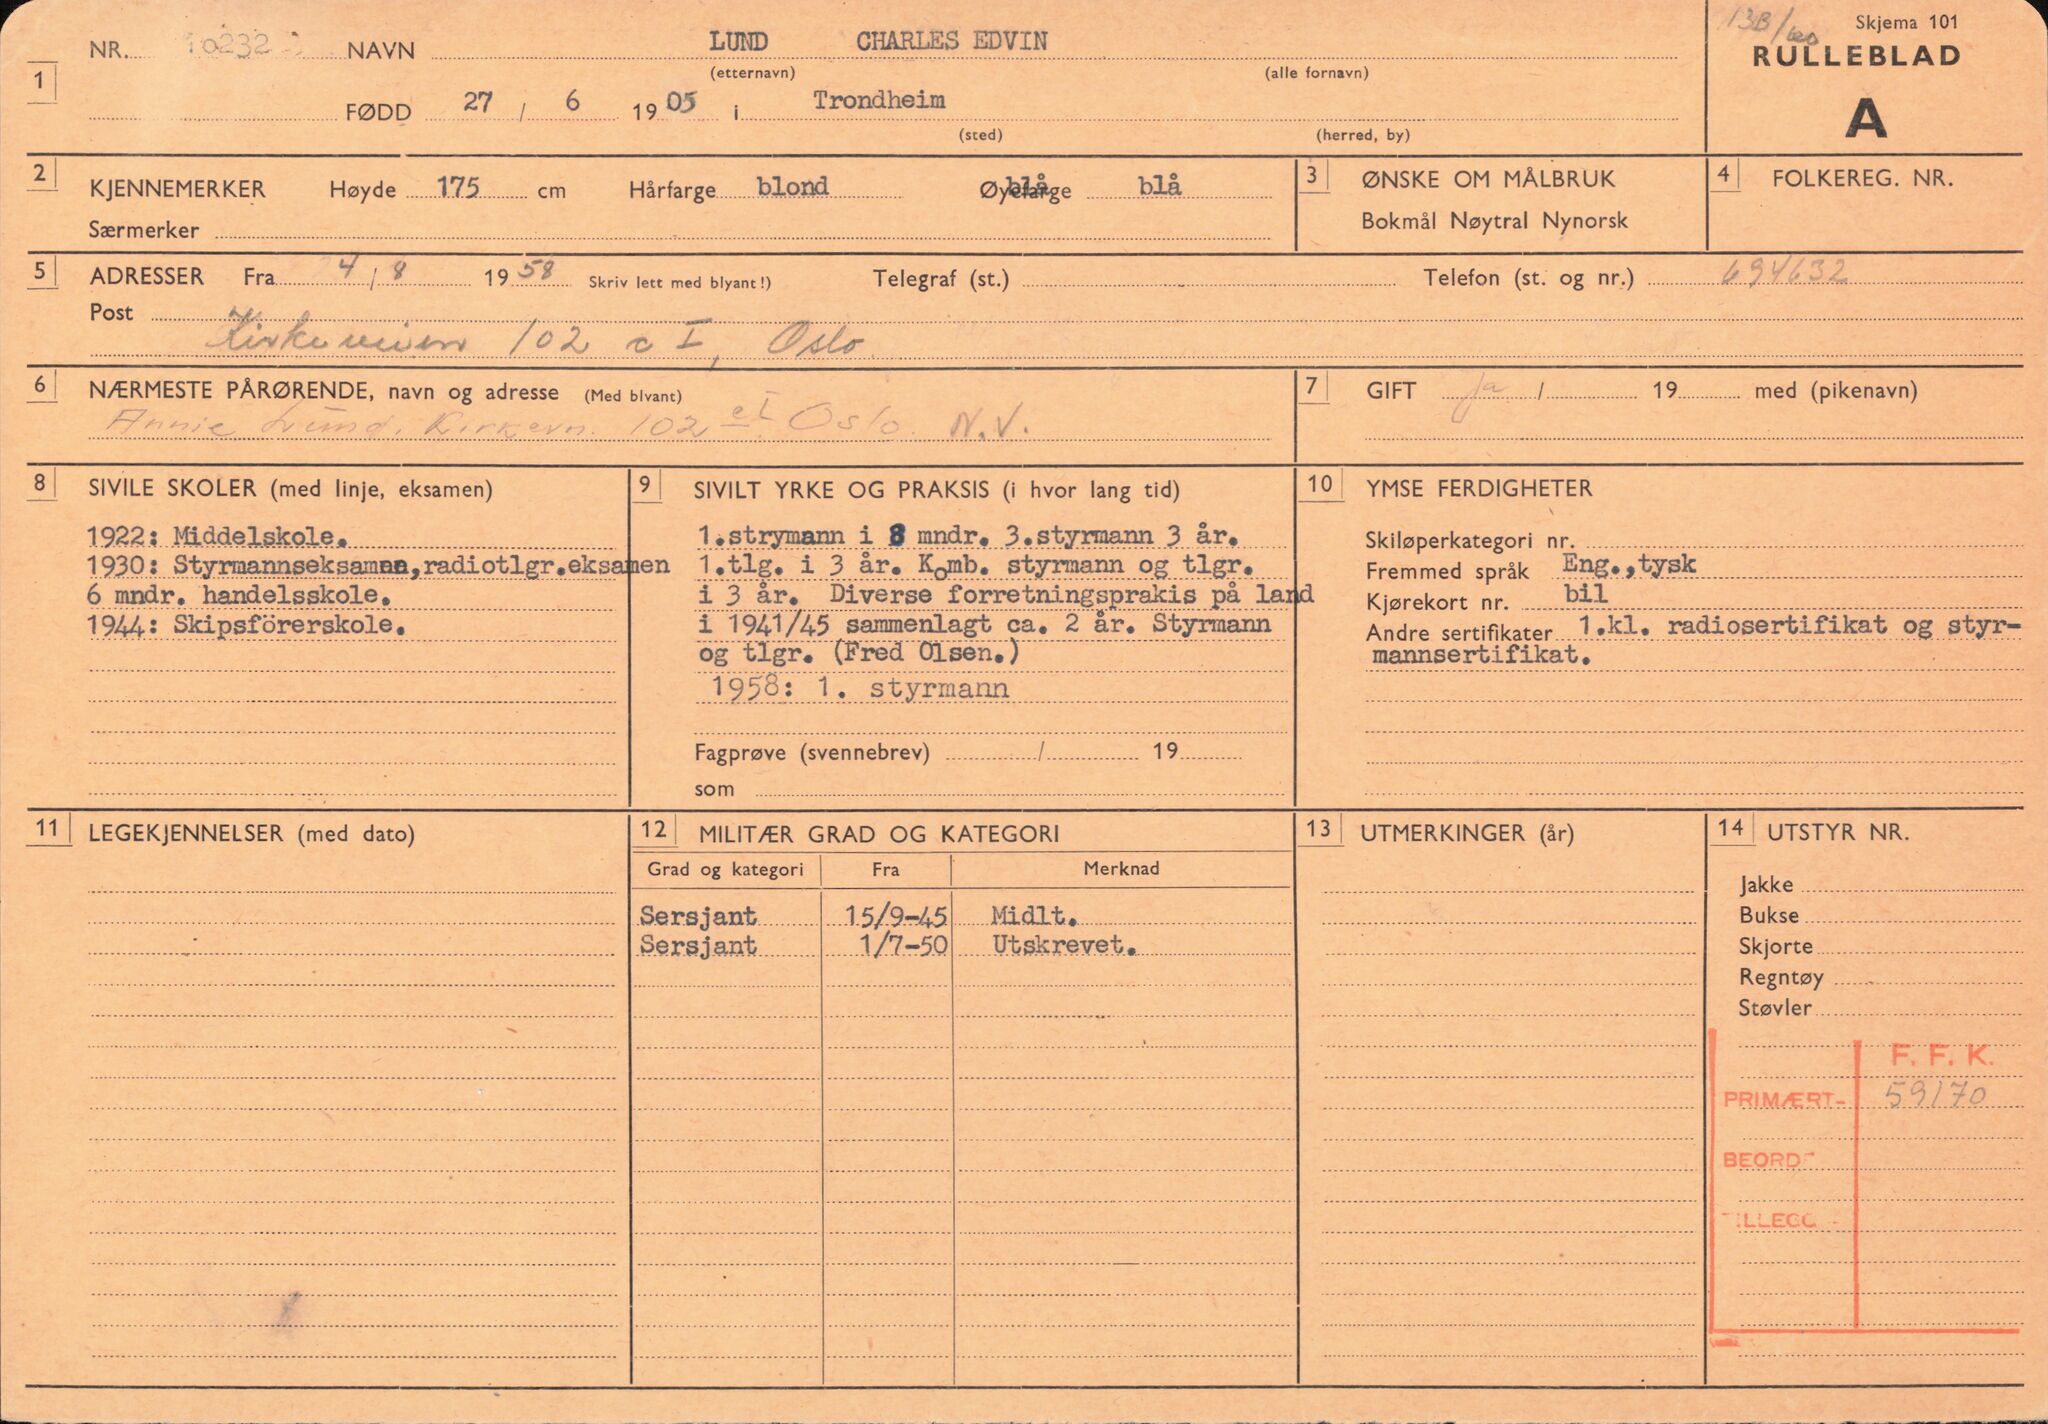 13B/60 Skjema 101
NR. 10232 NAVN LUND CHARLES EDVIN
(etternavn) (alle fornavn)
RULLEBLAD
A
1
FØDD 27 / 6 1905 i Trondheim
(sted) (herred, by)
2 KJENNEMERKER Høyde 175 cm Hårfarge blond Øyefarge blå blå
Særmerker
3 ØNSKE OM MÅLBRUK
Bokmål Nøytral Nynorsk
4 FOLKEREG. NR.
5 ADRESSER Fra 4 / 8 1958 Skriv lett med blyant!) Telegraf (st.) Telefon (st. og nr.) 694632
Post
Kirkeveien 102 c I, Oslo
6 NÆRMESTE PÅRØRENDE, navn og adresse (Med blyant)
Annie Lund, Kirkevn. 102 cI Oslo N.V.
7 GIFT ja / 19 med (pikenavn)
8 SIVILE SKOLER (med linje, eksamen)
1922: Middelskole.
1930: Styrmannseksamen, radiotlgr.eksamen
6 mndr. handelsskole.
1944: Skipsförerskole.
9 SIVILT YRKE OG PRAKSIS (i hvor lang tid)
1.strymann i 8 mndr. 3.styrmann 3 år.
1.tlg. i 3 år. Komb. styrmann og tlgr.
i 3 år. Diverse forretningsprakis på land
i 1941/45 sammenlagt ca. 2 år. Styrmann
og tlgr. (Fred Olsen.)
1958: 1. styrmann
Fagprøve (svennebrev) / 19
som
10 YMSE FERDIGHETER
Skiløperkategori nr.
Fremmed språk Eng.,tysk
Kjørekort nr. bil
Andre sertifikater 1.kl. radiosertifikat og styr-
mannsertifikat.
11 LEGEKJENNELSER (med dato)
12 MILITÆR GRAD OG KATEGORI
Grad og kategori Fra Merknad
Sersjant 15/9-45 Midlt.
Sersjant 1/7-50 Utskrevet.
13 UTMERKINGER (år)
14 UTSTYR NR.
Jakke
Bukse
Skjorte
Regntøy
Støvler
F. F. K.
PRIMÆRT- 59170
BEORD